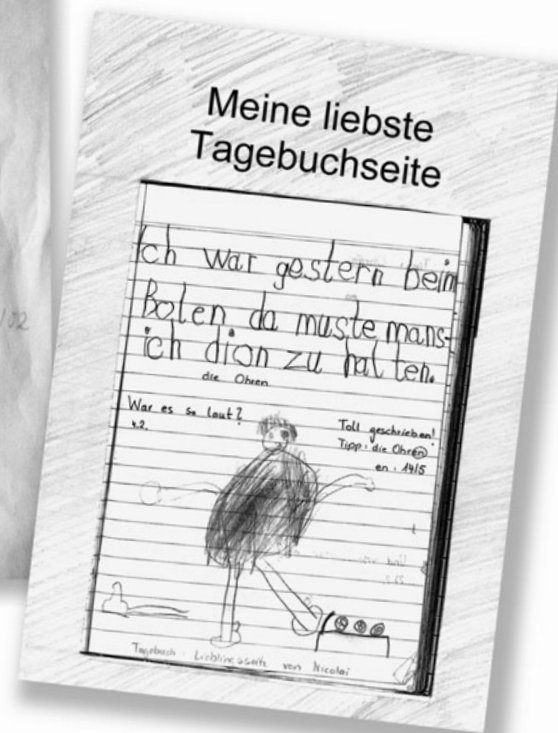 Meine liebste
Tagebuchseite
Ich war gestern beim
Bolen da muste mans-
ich dion zu hal ten.
die Ohren
War es so laut?
4.2.
Toll geschrieben!
Tipp: die Ohren
en: 14/5
Tagebuch: Lieblingsseite von Nicolai
102